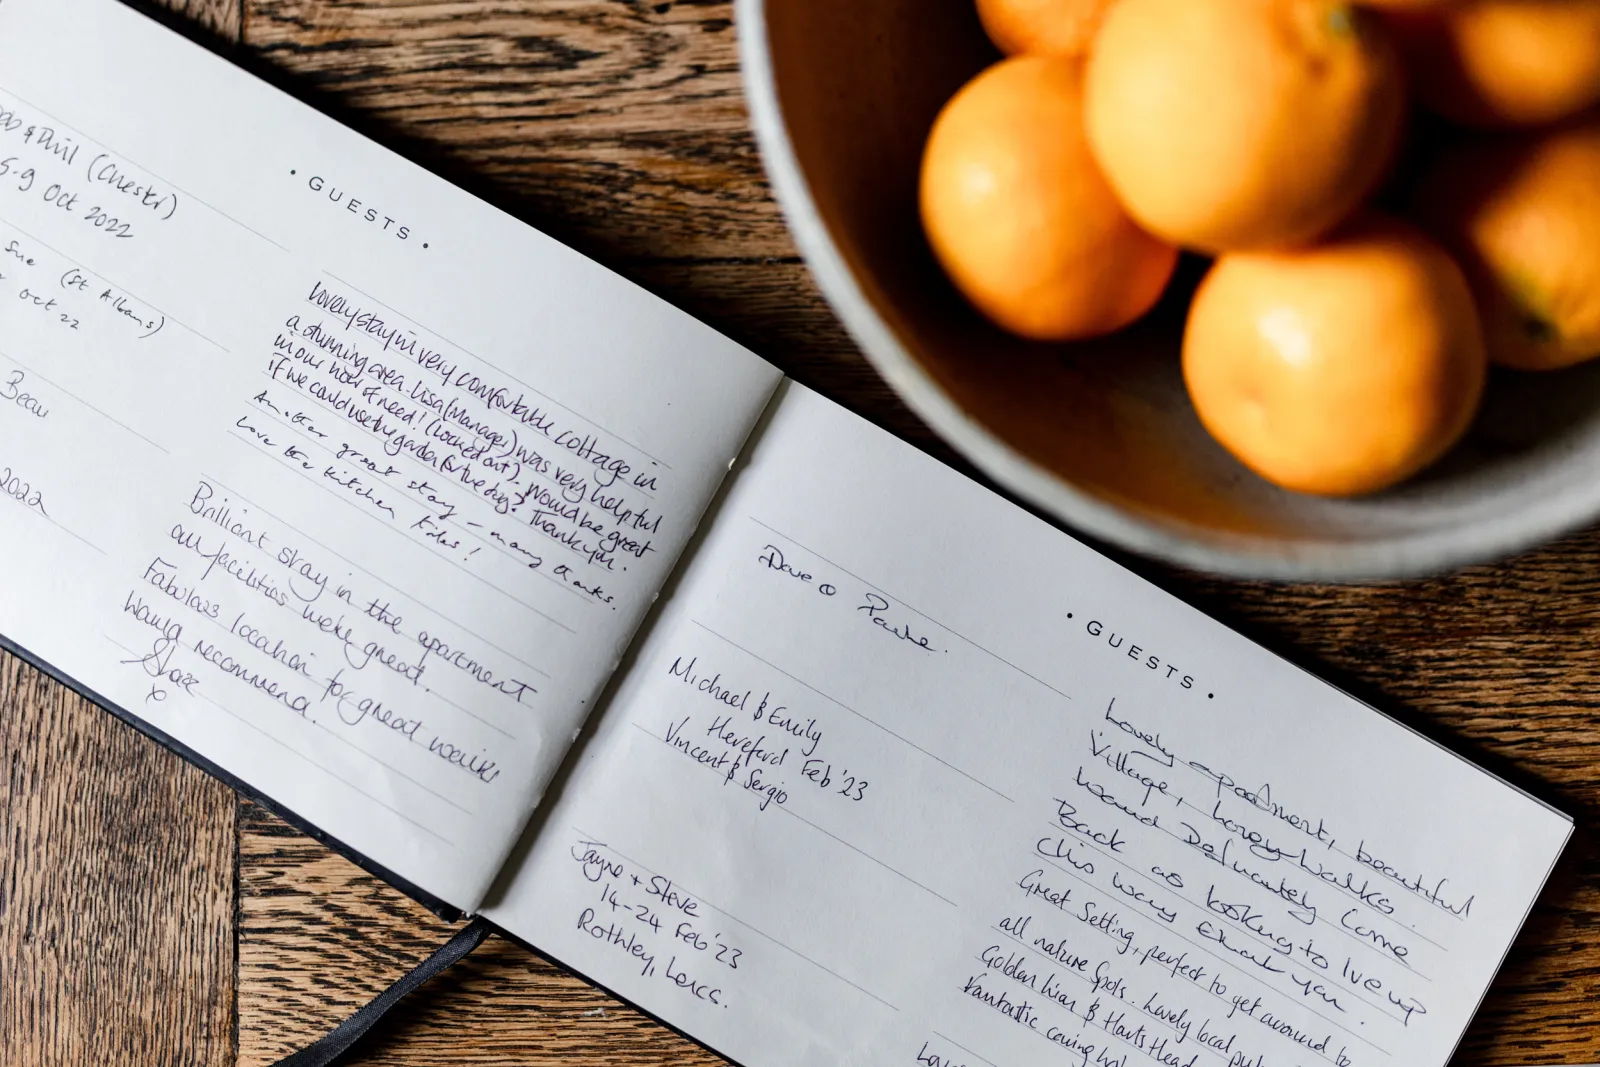 & Phil (Chester)
5-9 Oct 2022
Sue (St Albans)
Oct 22
Beau
2022
• GUESTS •
Lovely stay in very comfortable cottage in
a stunning area. Lisa (Manager) was very helpful
in our hour of need! (Locked out). Would be great
if we could use the garden for the dog? Thank you.
Another great stay - many thanks.
Love the kitchen tiles!
Brilliant stay in the apartment
all facilities were great.
Fabulous location for great walks
Would recommend.
x
Dave &
Michael & Emily
Hereford Feb '23
Vincent & Sergio
Jayne + Steve
14-24 Feb '23
Rothley, Leics.
• GUESTS •
Lovely apartment, beautiful
Village, Walks.
Definately Come
Back as looking to live up
this way thank you.
Great Setting, perfect to get around to
all nature spots. Lovely local
Golden Lion & Harts Head
Fantastic